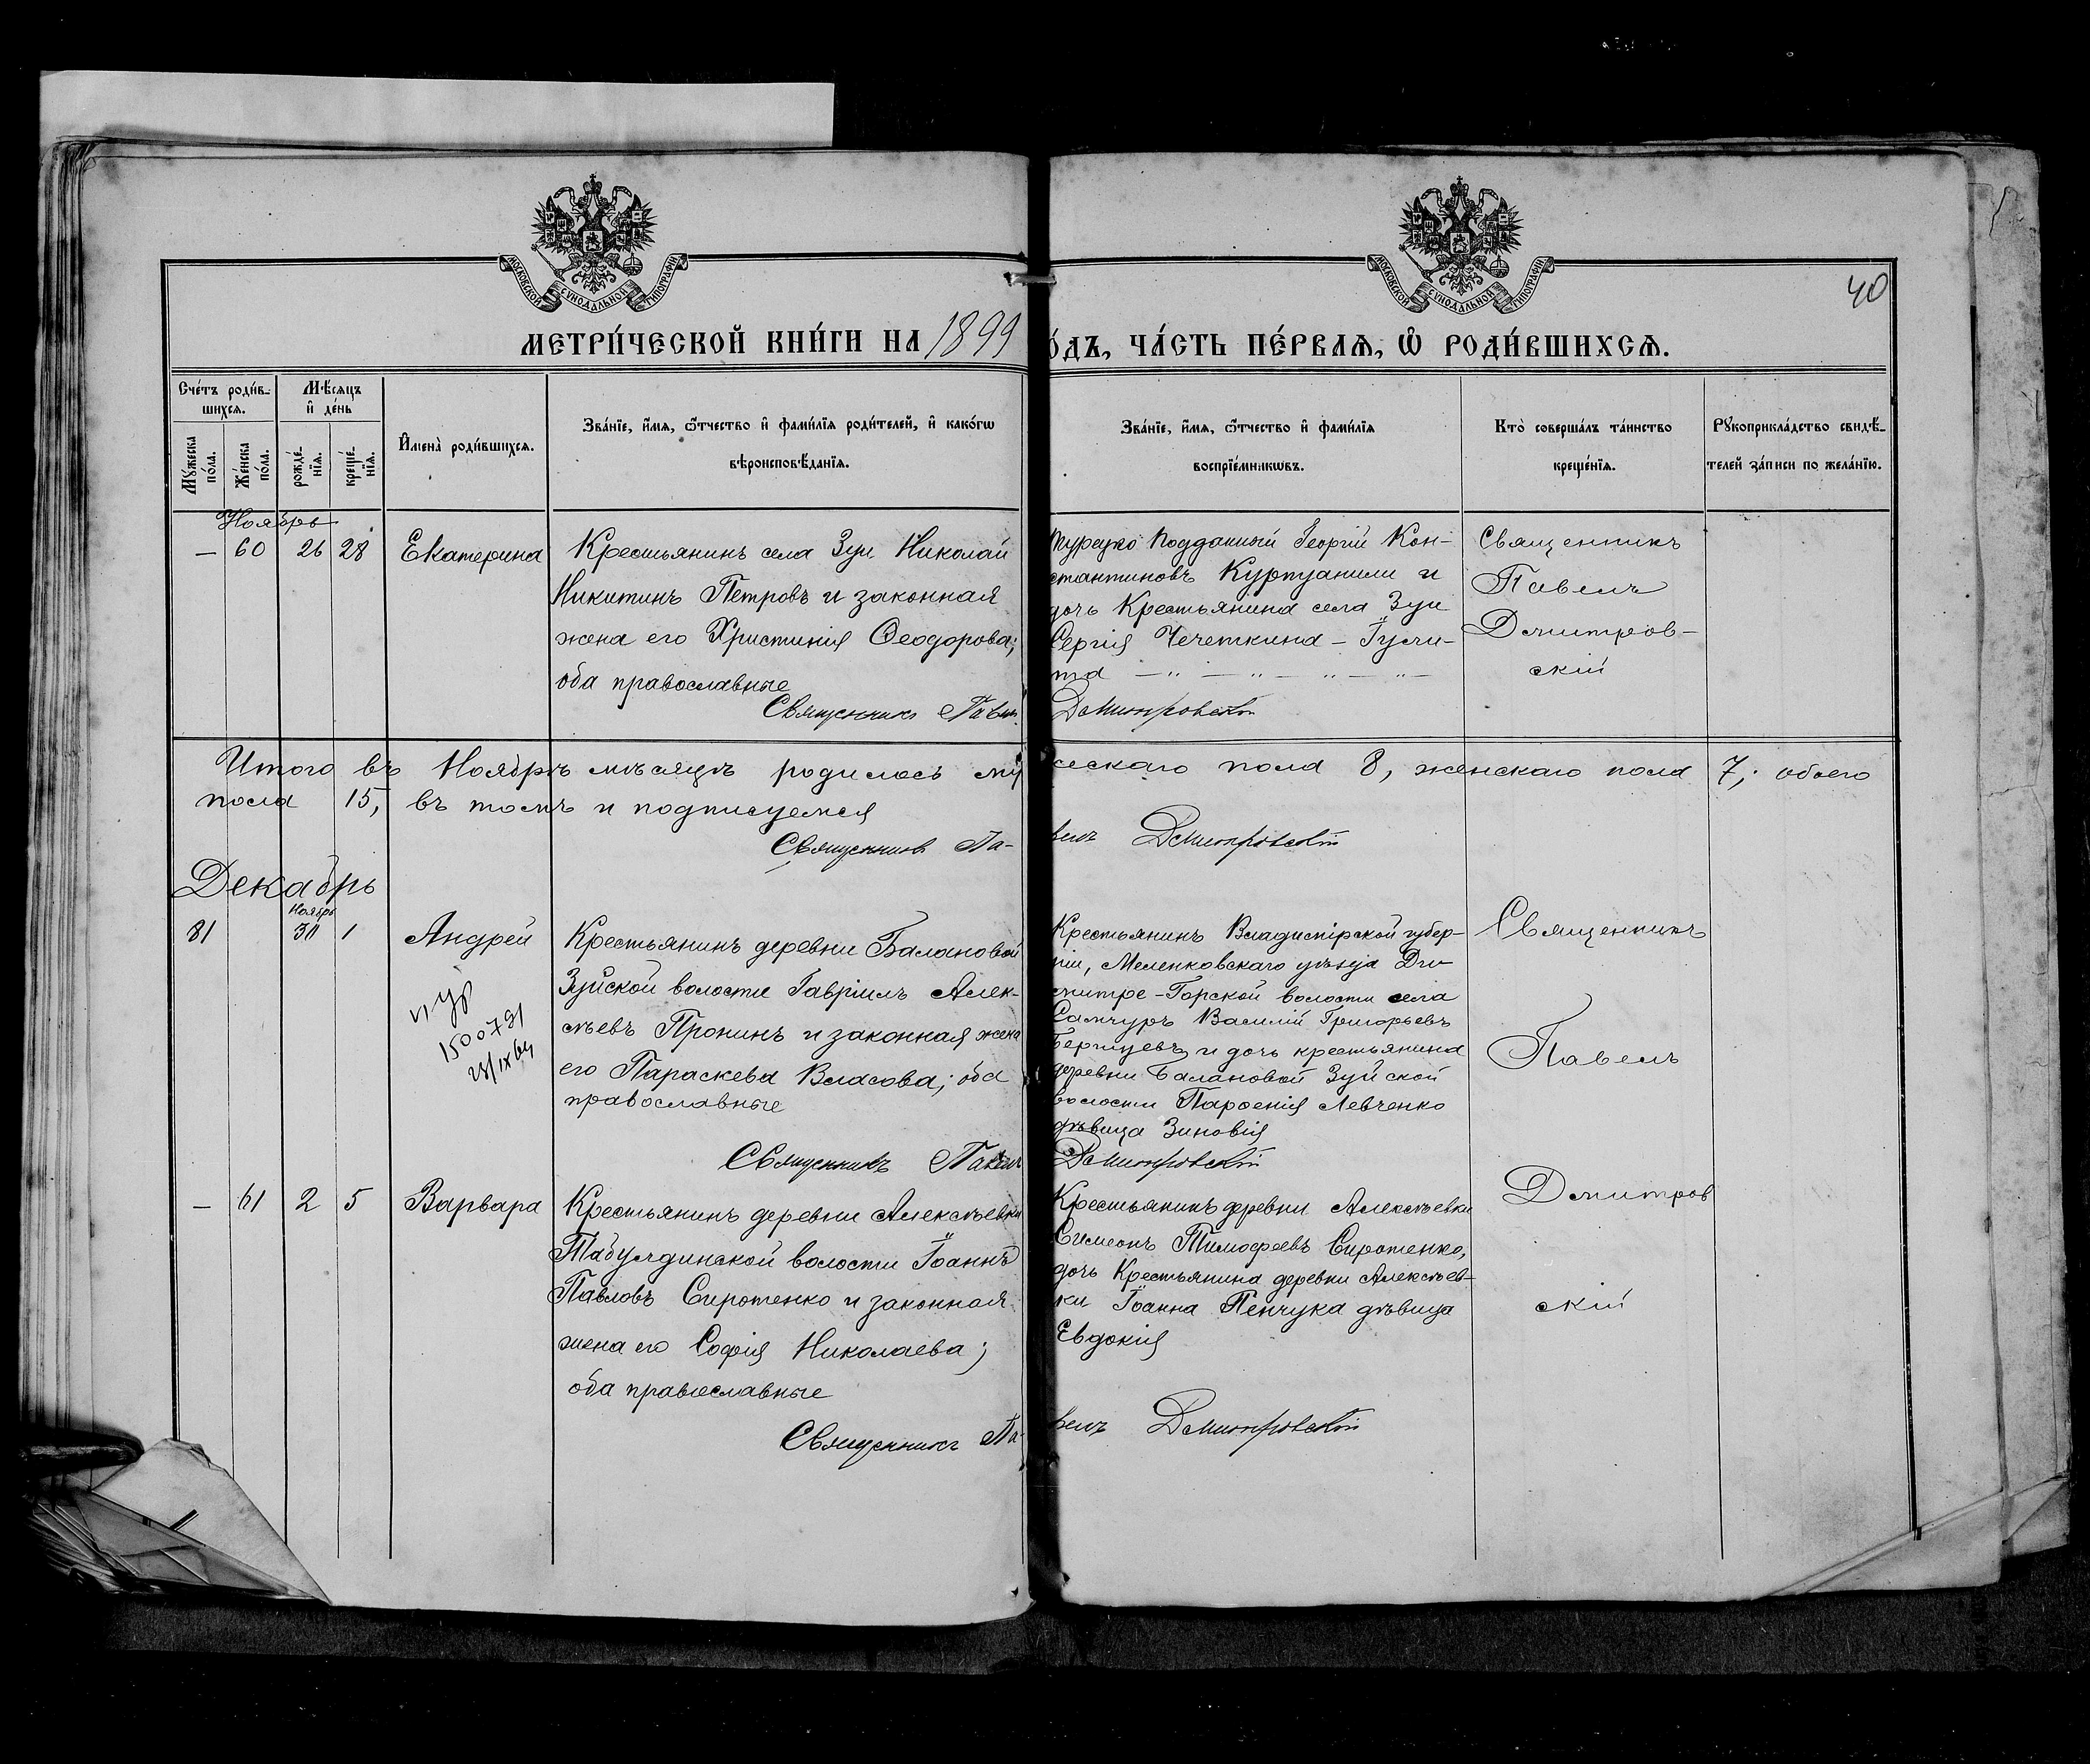 МОСКОВСКОЙ СѴНОДАЛЬНОЙ ТИПОГРАФІИ
МОСКОВСКОЙ СѴНОДАЛЬНОЙ ТИПОГРАФІИ
40
МЕТРИ́ЧЕСКОЙ КНИ́ГИ НА 1899
О́ДЪ, ЧА́СТЬ ПЕ́РВАѦ, Ѡ҆ РОДИ́ВШИХСѦ.
Сче́тъ роди́в-
шихсѧ.
Мꙋ́жеска по́ла.
Же́нска по́ла.
Мѣ́сѧцъ
и҆ де́нь
рожде́-
нїѧ.
креще́-
нїѧ.
И҆мена̀ роди́вшихсѧ.
Зва́нїе, и҆́мѧ, ѻ҆́тчество и҆ фами́лїѧ роди́телей, и҆ како́гѡ
вѣроисповѣ́данїѧ.
Зва́нїе, и҆́мѧ, ѻ҆́тчество и҆ фами́лїѧ
воспрїе́мникѡвъ.
Кто̀ соверша́лъ та́инство
креще́нїѧ.
Рꙋкоприкла́дство свидѣ́-
телей за́писи по жела́нїю.
Ноябрь
— 60 26 28 Екатерина
Крестьянинъ села Зуи Николай
Никитинъ Петровъ и законная
жена его Христинія Ѳеодорова;
оба православные
Священникъ Павелъ
Турецко подданный Георгій Кон-
стантиновъ Куртуанили и
дочь Крестьянина села Зуи
Сергія Чечеткина – Гули-
та
Дмитровскій
Священникъ
Павелъ
Дмитров-
скій
Итого въ Ноябрѣ мѣсяцѣ родилось му
ческаго пола 8, женскаго пола 7; обоего
пола 15, въ томъ и подписуемся
Священникъ Па-
велъ Дмитровскій
Декабрь
Ноябрь
81 30 1 Андрей
1500791
Крестьянинъ деревни Балановой
Зуйской волости Гавріилъ Алек-
сѣевъ Пронинъ и законная жена
его Параскева Власова; оба
православные
Священникъ Павелъ
Крестьянинъ Владимірской губер-
ніи, Меленковскаго уѣзда Дми-
митре-Горской волости села
Самчуръ Василій Григорьевъ
и дочь крестьянина
деревни Балановой Зуйской
волости Парѳенія Левченко
дѣвица Зиновія
Дмитровскій
Священникъ
Павелъ
Дмитров
скій
— 61 2 5 Варвара
Крестьянинъ деревни Алексѣевки
Табулдинской волости Іоаннъ
Павловъ Сиротенко и законная
жена его Софія Николаева;
оба православные
Священникъ Па-
Крестьянинъ деревни Алексѣевки
Симеонъ Тимофеевъ Сиротенко,
дочь Крестьянина деревни Алексѣев-
ки Іоанна Пенчука дѣвица
Евдокія
велъ Дмитровскій